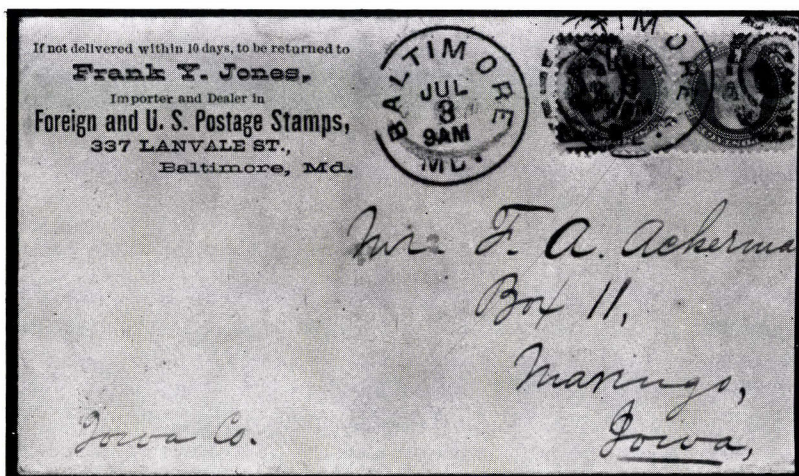 If not delivered within 10 days, to be returned to
Frank Y. Jones,
Importer and Dealer in
Foreign and U. S. Postage Stamps,
337 LANVALE ST.,
Baltimore, Md.
BALTIMORE
JUL
3
9AM
MD.
Mr. F. A. Ackerma
Box 11,
Marengo,
Iowa,
Iowa Co.